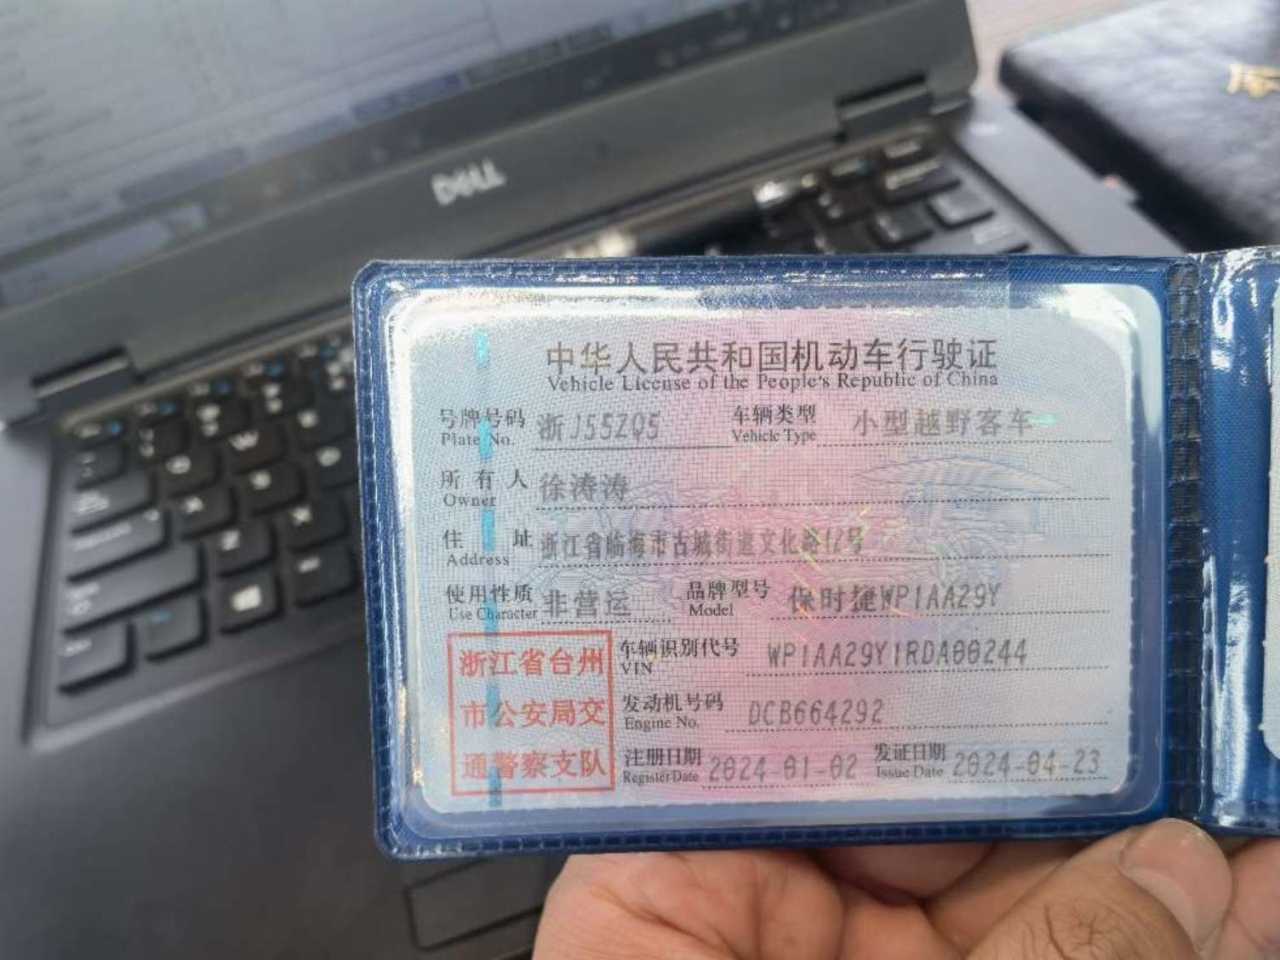 DELL
中华人民共和国机动车行驶证
Vehicle License of the People's Republic of China
号牌号码 浙J55ZQ5 车辆类型 小型越野客车
Plate No. Vehicle Type
所有人 徐涛涛
Owner
住址 浙江省临海市古城街道文化路17号
Address
使用性质 非营运 品牌型号 保时捷WP1AA29Y
Use Character Model
浙江省台州
市公安局交
通警察支队
车辆识别代号 WP1AA29Y1RDA00244
VIN
发动机号码 DCB664292
Engine No.
注册日期 2024-01-02 发证日期 2024-04-23
Register Date Issue Date